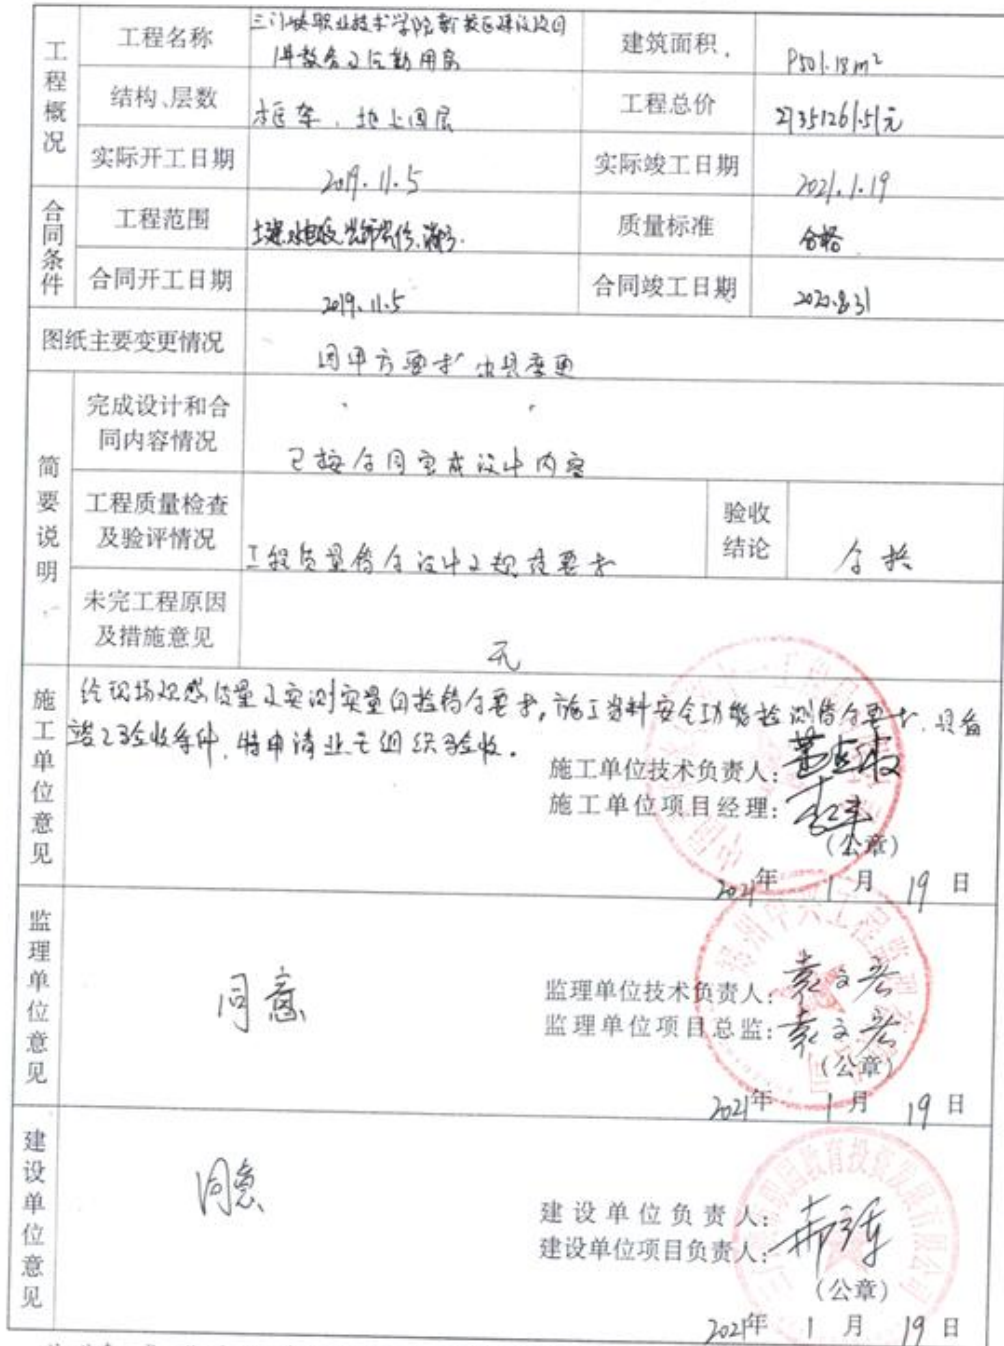 工程概况
工程名称
三门峡职业技术学院新校区建设项目
1#教舍及后勤用房
建筑面积
9501.18m²
结构、层数
框架、地上四层
工程总价
21351261.51元
实际开工日期
2019.11.5
实际竣工日期
2021.1.19
合同条件
工程范围
质量标准
合格
合同开工日期
2019.11.5
合同竣工日期
2020.8.31
图纸主要变更情况
因甲方要求出具变更
简要说明
完成设计和合
同内容情况
已按合同完成设计内容
工程质量检查
及验评情况
工程质量符合设计及规范要求
验收
结论
合格
未完工程原因
及措施意见
无
施工单位意见
经现场观感质量及实测实量自检符合要求,施工资料安全功能检测符合要求,具备
竣工验收条件,特申请业主组织验收。
施工单位技术负责人:
施工单位项目经理:
(公章)
2021年1月19日
监理单位意见
同意
监理单位技术负责人:袁文宏
监理单位项目总监:袁文宏
(公章)
2021年1月19日
建设单位意见
同意
建设单位负责人:
建设单位项目负责人:
(公章)
2021年1月19日